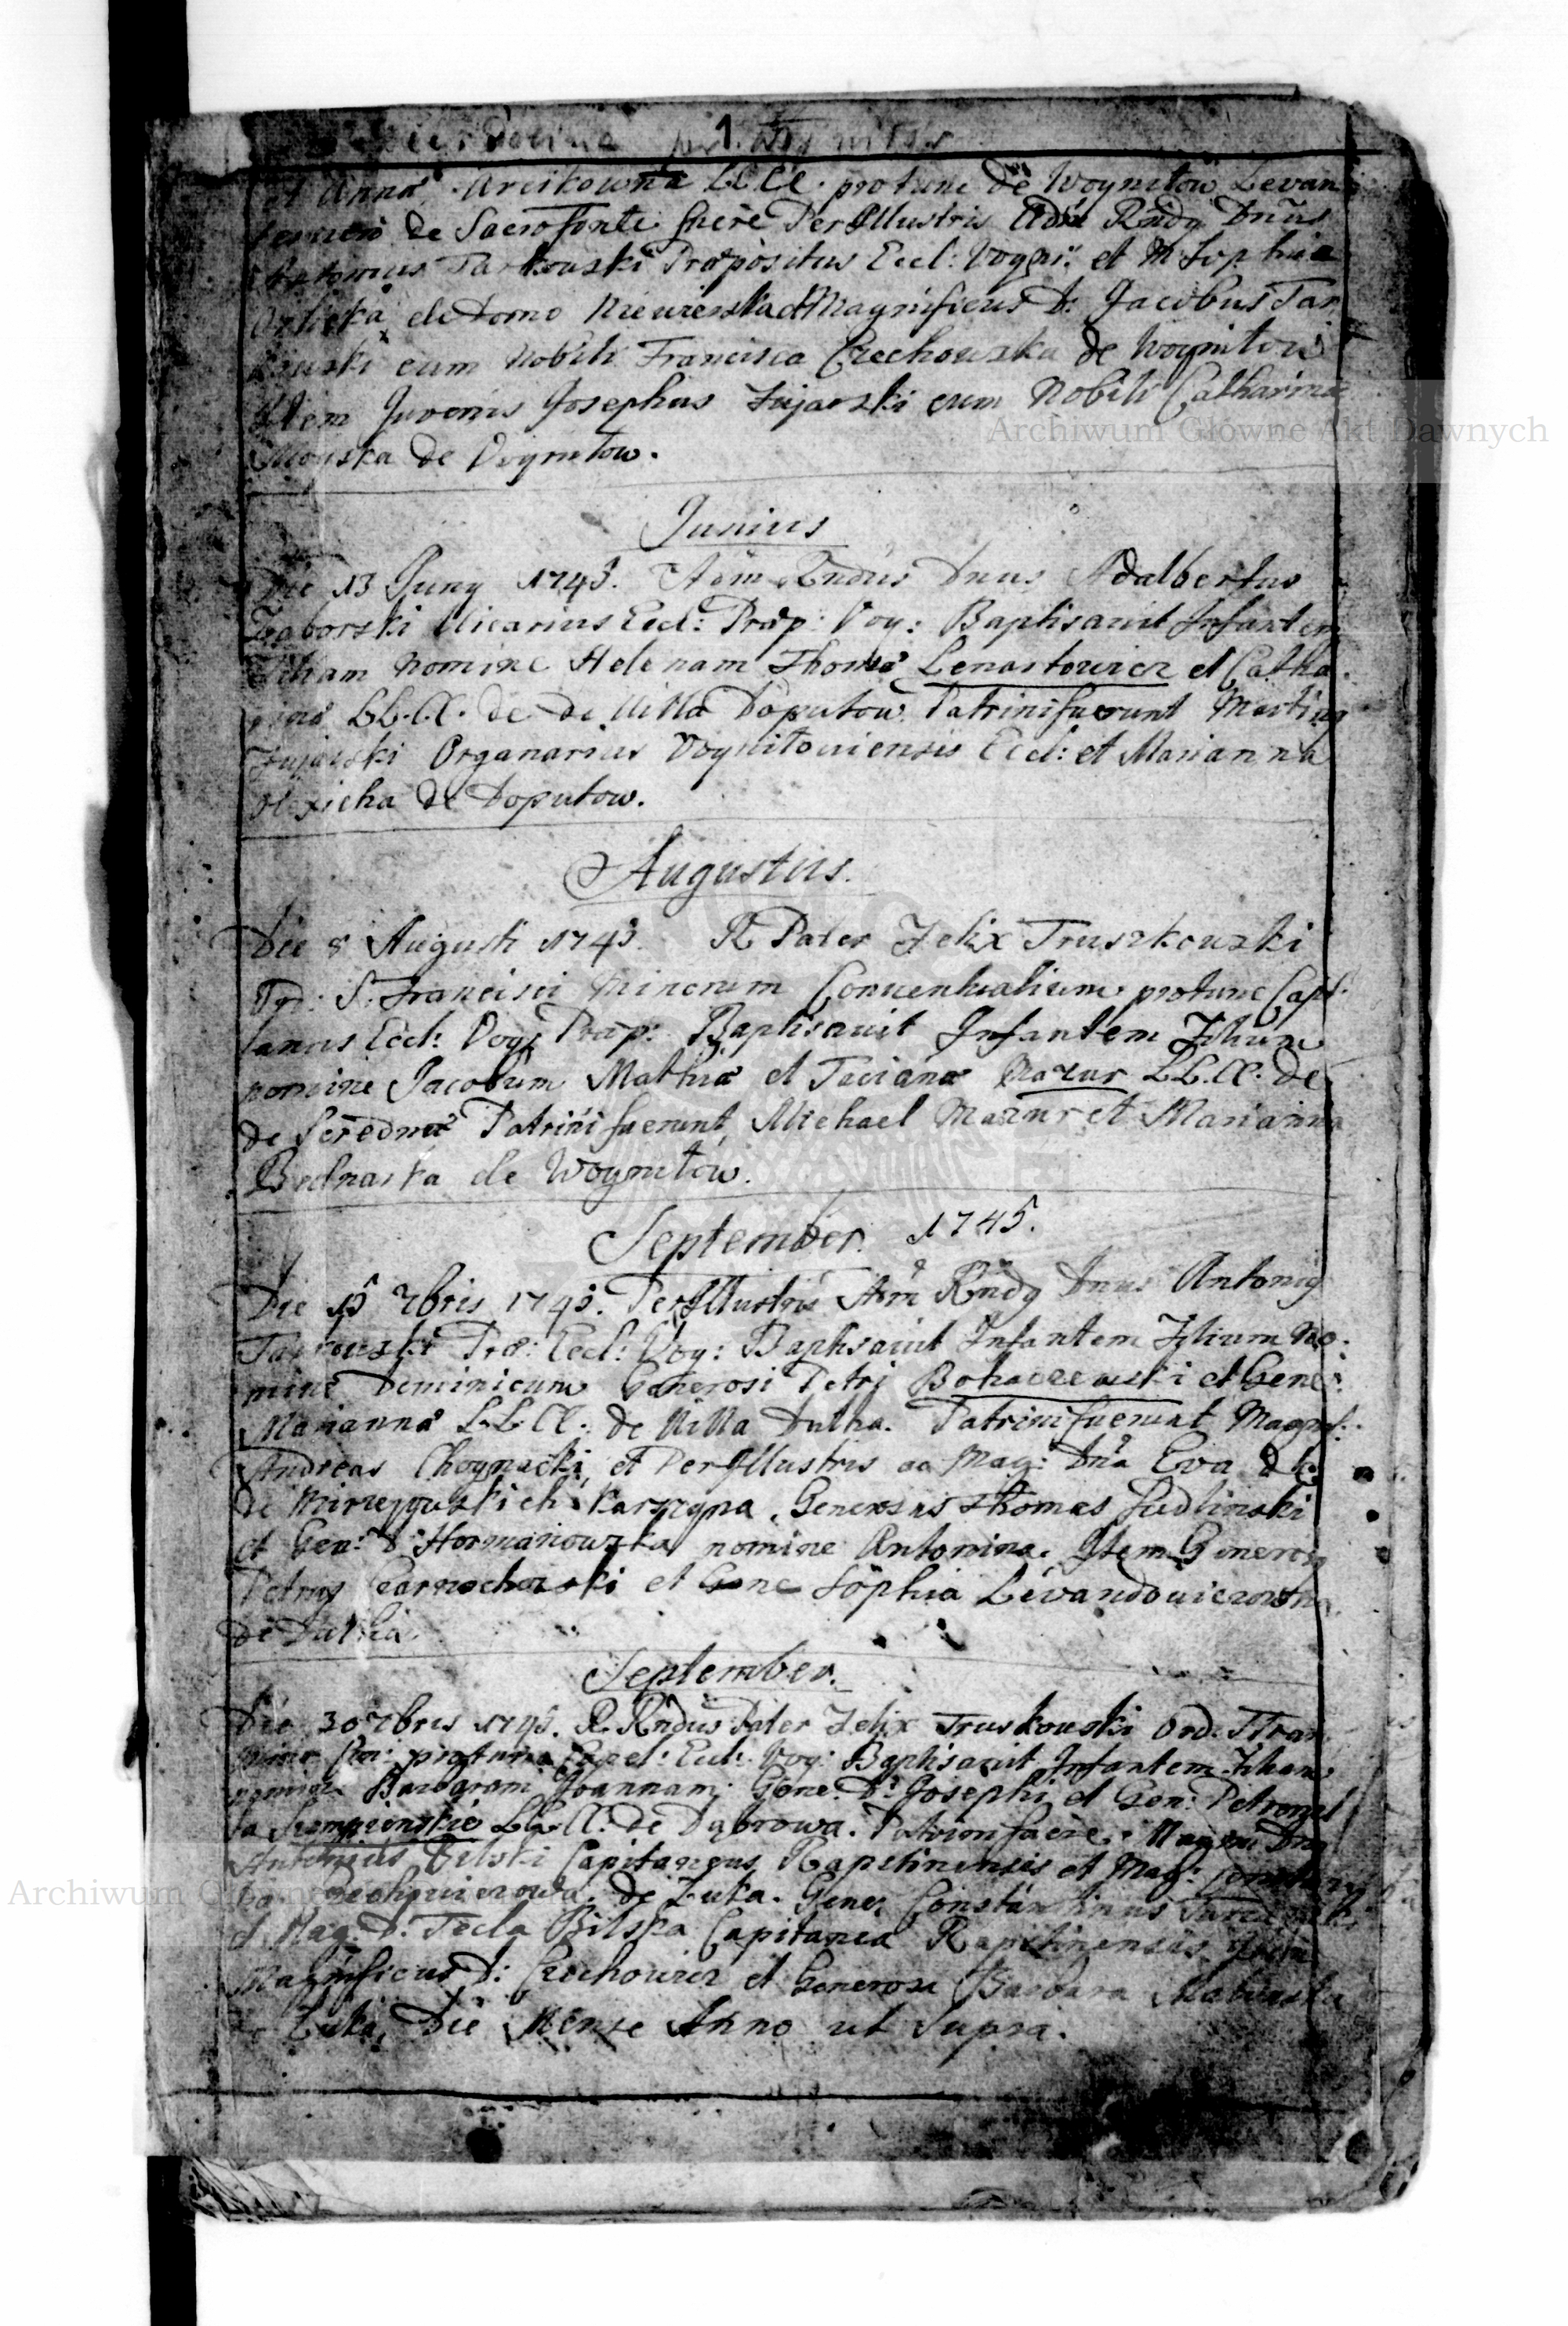 1.
et Anna Arcikowna LLCC. protunc de Woynitow Levan
tes de Sacro fonte fuere Perillustris Adm Rndg Dnus
Antonius Tarkowski Præpositus Eccl: Voyni: et M. Sophia
de Domo et Magnificus D: Jacobus Tar
kouski cum Nobili Francisca Czechowska de Woynitow
Item Juvenis Josephus Fujarski cum Nobili Catharina
de Voynitow.
Junius
Die 13 Juny 1745. Adm Rndus Dnus Adalbertus
Zaborski Vicarius Eccl: Præp: Voy: Baptisavit Infantem
Filiam nomine Helenam Thoma Lenartowicz et Catha
rina LL.CC. de de Villa Doputow Patrini fuerunt Marting
Fujarski Organarius Voynitoviensis Eccl: et Marianna
de Doputow.
Augustus.
Die 8 Augusti 1745. R Pater Felix Truszkowski
Ord: S. Francisci Minorum Conventualium protunc Capel
lanus Eccl: Voy: Præp: Baptisavit Infantem Filium
nomine Jacobum Mathia et Taciana Mazur LL.CC. de
de Seredna Patrini fuerunt Michael Mazur et Marianna
Bednarka de Woynitow.
September. 1745.
Die 15 7bris 1745. Perillustris Adm Rndg Dnus Antonig
Tarkowski Præ: Eccl: Voy: Baptisavit Infantem Filium No:
mine Dominicum Generosi Petri et Gene:
Marianna LL.CC. de Villa Dulha. Patrini fuerunt Magnif:
Andreas Choynacki et Perillustris ac Mag: Dna Eva de
de Karszyna. Generosus Thomas Sudlinski
et Gen: D: Hormanowska nomine Antonina. Item Generosg
Petrus et Gene Sophia Levandowiczowna
de Dulha.
September.
Die 30 7bris 1745. R Rndus Pater Felix Truskowski Ord. S Fran
Minor Con: protunc Capel: Eccl: Voy: Baptisavit Infantem Filiam
nomine Joannam Gene: D: Josephi et Gen: Petronel
la LL.CC. de Dąbrowa. Patrini fuere Magn: Dng
Antonius Bilski Capitaneus Rapetinensis et Mag:
de Zuka. Gener Constantinus
et Mag: D: Tecla Bilska Capitanea Rapetinensis Item
Magnificus D: Czechowicz et Generosa Barbara
de Zuka, Die Mense Anno ut Supra.
Archiwum Główne Akt Dawnych
Archiwum